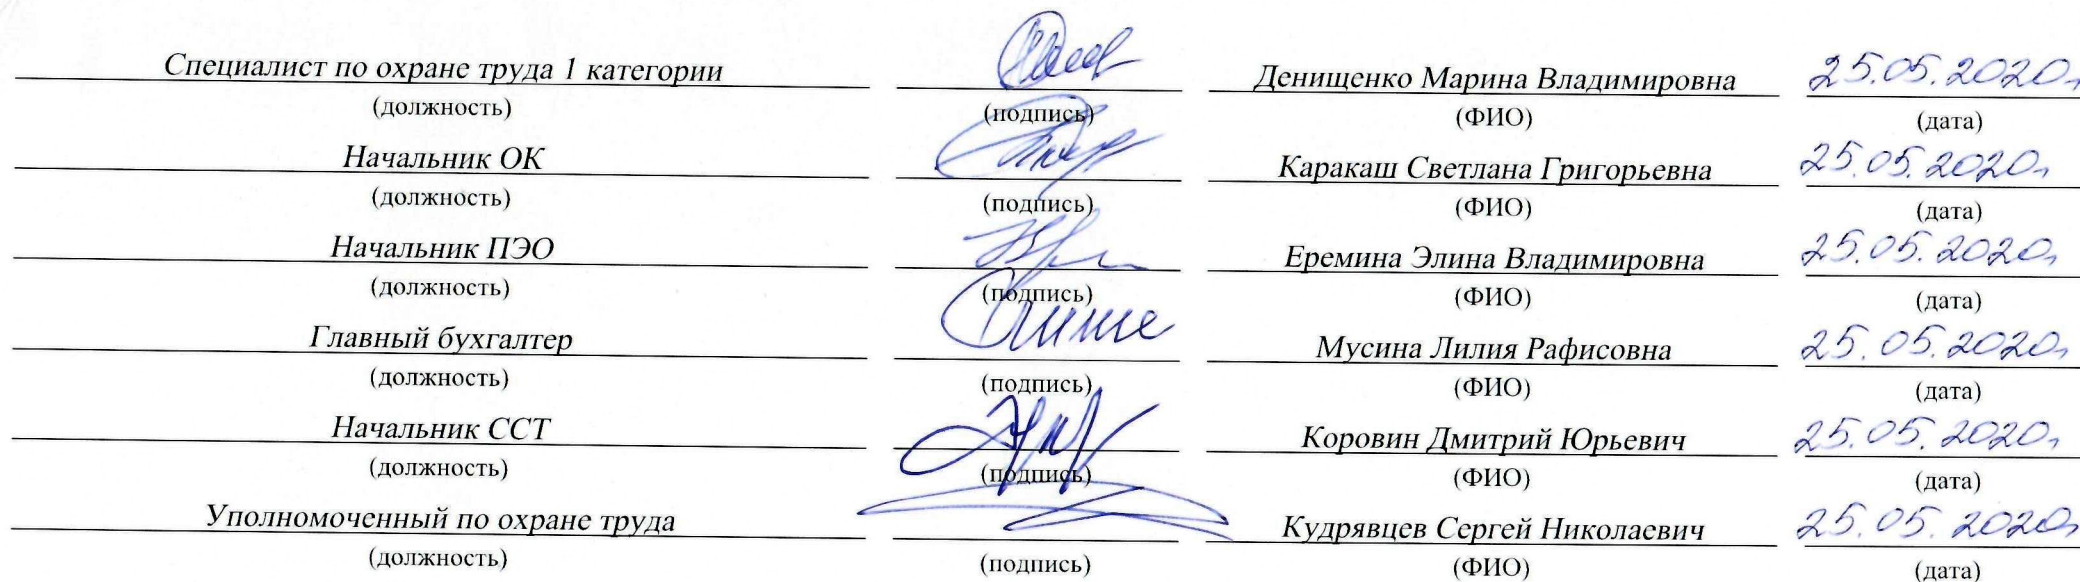 Специалист по охране труда 1 категории Денищенко Марина Владимировна 25.05.2020г
(должность) (подпись) (ФИО) (дата)
Начальник ОК Каракаш Светлана Григорьевна 25.05.2020г
(должность) (подпись) (ФИО) (дата)
Начальник ПЭО Еремина Элина Владимировна 25.05.2020г
(должность) (подпись) (ФИО) (дата)
Главный бухгалтер Мусина Лилия Рафисовна 25.05.2020г
(должность) (подпись) (ФИО) (дата)
Начальник ССТ Коровин Дмитрий Юрьевич 25.05.2020г
(должность) (подпись) (ФИО) (дата)
Уполномоченный по охране труда Кудрявцев Сергей Николаевич 25.05.2020г
(должность) (подпись) (ФИО) (дата)